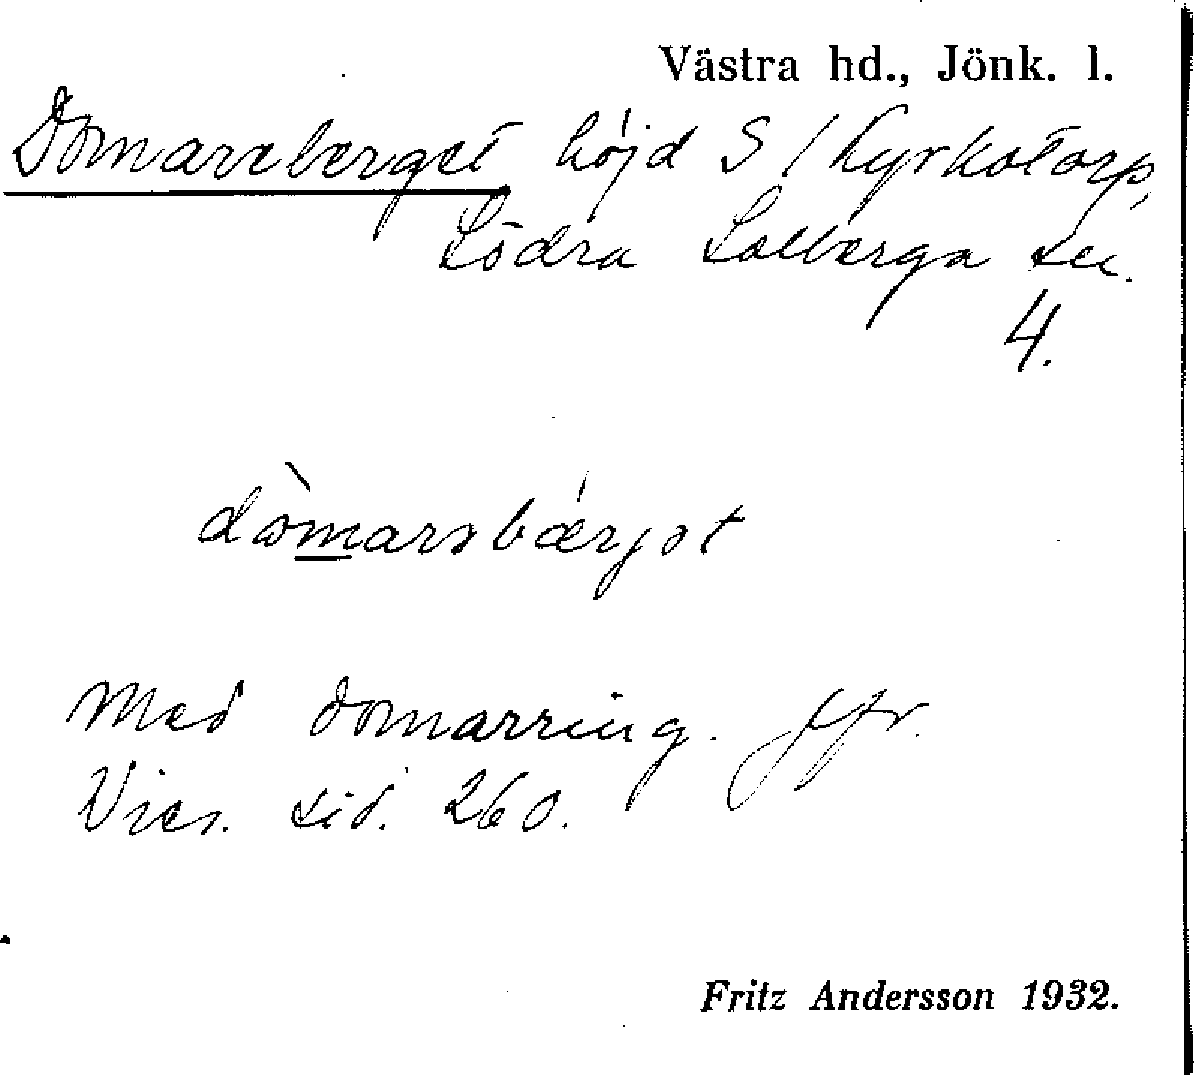 Västra hd., Jönk. l.
Domareberget höjd S / Kyrkotorp,
Södra Solberga sn.
4.
dòmarəbærjət
Med domarring. Jfr.
Vies. sid. 260.
Fritz Andersson 1932.